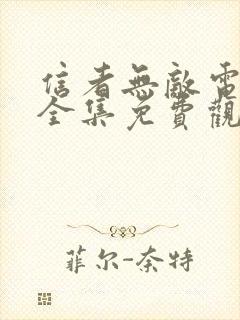 信者無敵電
全集免費觀
菲尔-奈特